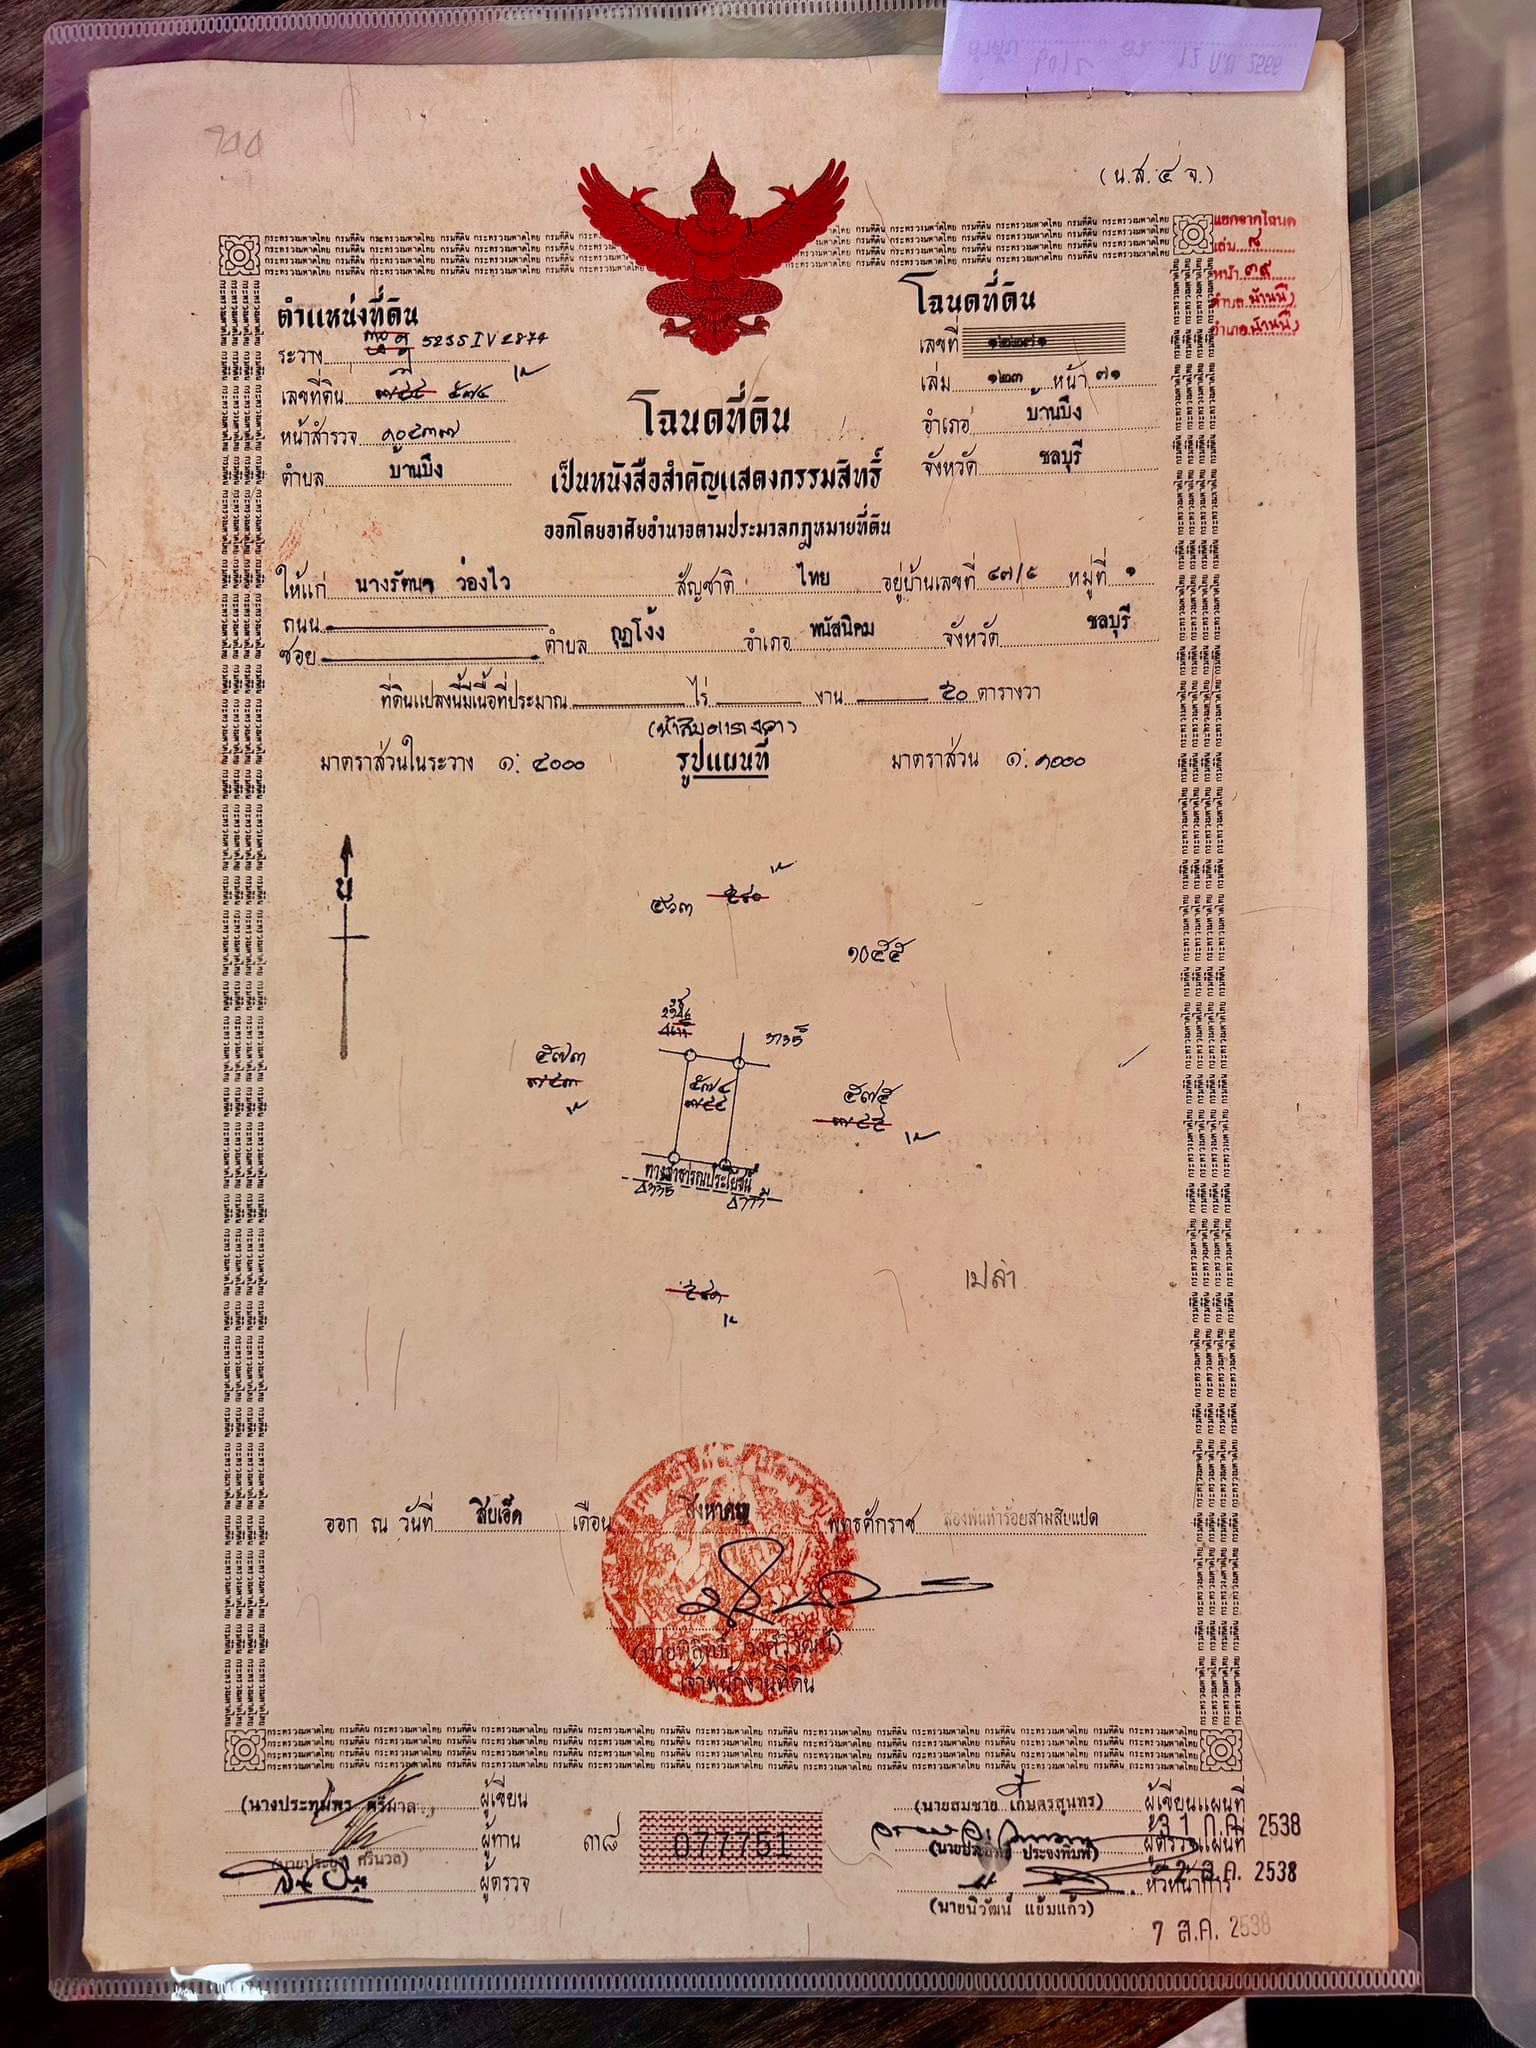 (น.ส.๔ จ.)
แยกจากโฉนด
เล่ม ๘
หน้า ๓๙
ตำบล บ้านบึง
อำเภอ บ้านบึง
กระทรวงมหาดไทย กรมที่ดิน กระทรวงมหาดไทย กรมที่ดิน กระทรวงมหาดไทย กรมที่ดิน
ตำแหน่งที่ดิน
ระวาง 5235 IV 2874
เลขที่ดิน ๕๗๔
หน้าสำรวจ ๑๐๔๓๗
ตำบล บ้านบึง
โฉนดที่ดิน
เลขที่
เล่ม ๑๒๓ หน้า ๗๑
อำเภอ บ้านบึง
จังหวัด ชลบุรี
โฉนดที่ดิน
เป็นหนังสือสำคัญแสดงกรรมสิทธิ์
ออกโดยอาศัยอำนาจตามประมวลกฎหมายที่ดิน
ให้แก่ นางรัตนา ว่องไว สัญชาติ ไทย อยู่บ้านเลขที่ ๔๗/๕ หมู่ที่ ๑
ถนน
ซอย ตำบล กุฎโง้ง อำเภอ พนัสนิคม จังหวัด ชลบุรี
ที่ดินแปลงนี้มีเนื้อที่ประมาณ ไร่ งาน ๕๐ ตารางวา
(ห้าสิบตารางวา)
มาตราส่วนในระวาง ๑: ๔๐๐๐ รูปแผนที่ มาตราส่วน ๑: ๑๐๐๐
น
๕๖๓
๑๐๕๕
๕๗๓
๕๗๔
๕๗๕
ทางสาธารณประโยชน์
เปล่า
ออก ณ วันที่ สิบเอ็ด เดือน สิงหาคม พุทธศักราช สองพันห้าร้อยสามสิบแปด
(นายพิสิทธิ์ วงศ์วิวัฒน์)
เจ้าพนักงานที่ดิน
กระทรวงมหาดไทย กรมที่ดิน กระทรวงมหาดไทย กรมที่ดิน กระทรวงมหาดไทย กรมที่ดิน
(นางประทุมพร ศรีมาลา) ผู้เขียน
ผู้ทาน
ผู้ตรวจ
๓๘ 077751
(นายสมชาย เกี้ยตรสุนทร) ผู้เขียนแผนที่
31 ก.ค. 2538
ผู้ตรวจแผนที่
ประจงพิมพ์)
หัวหน้าการ
2 ส.ค. 2538
(นายนิวัฒน์ แย้มแก้ว)
7 ส.ค. 2538